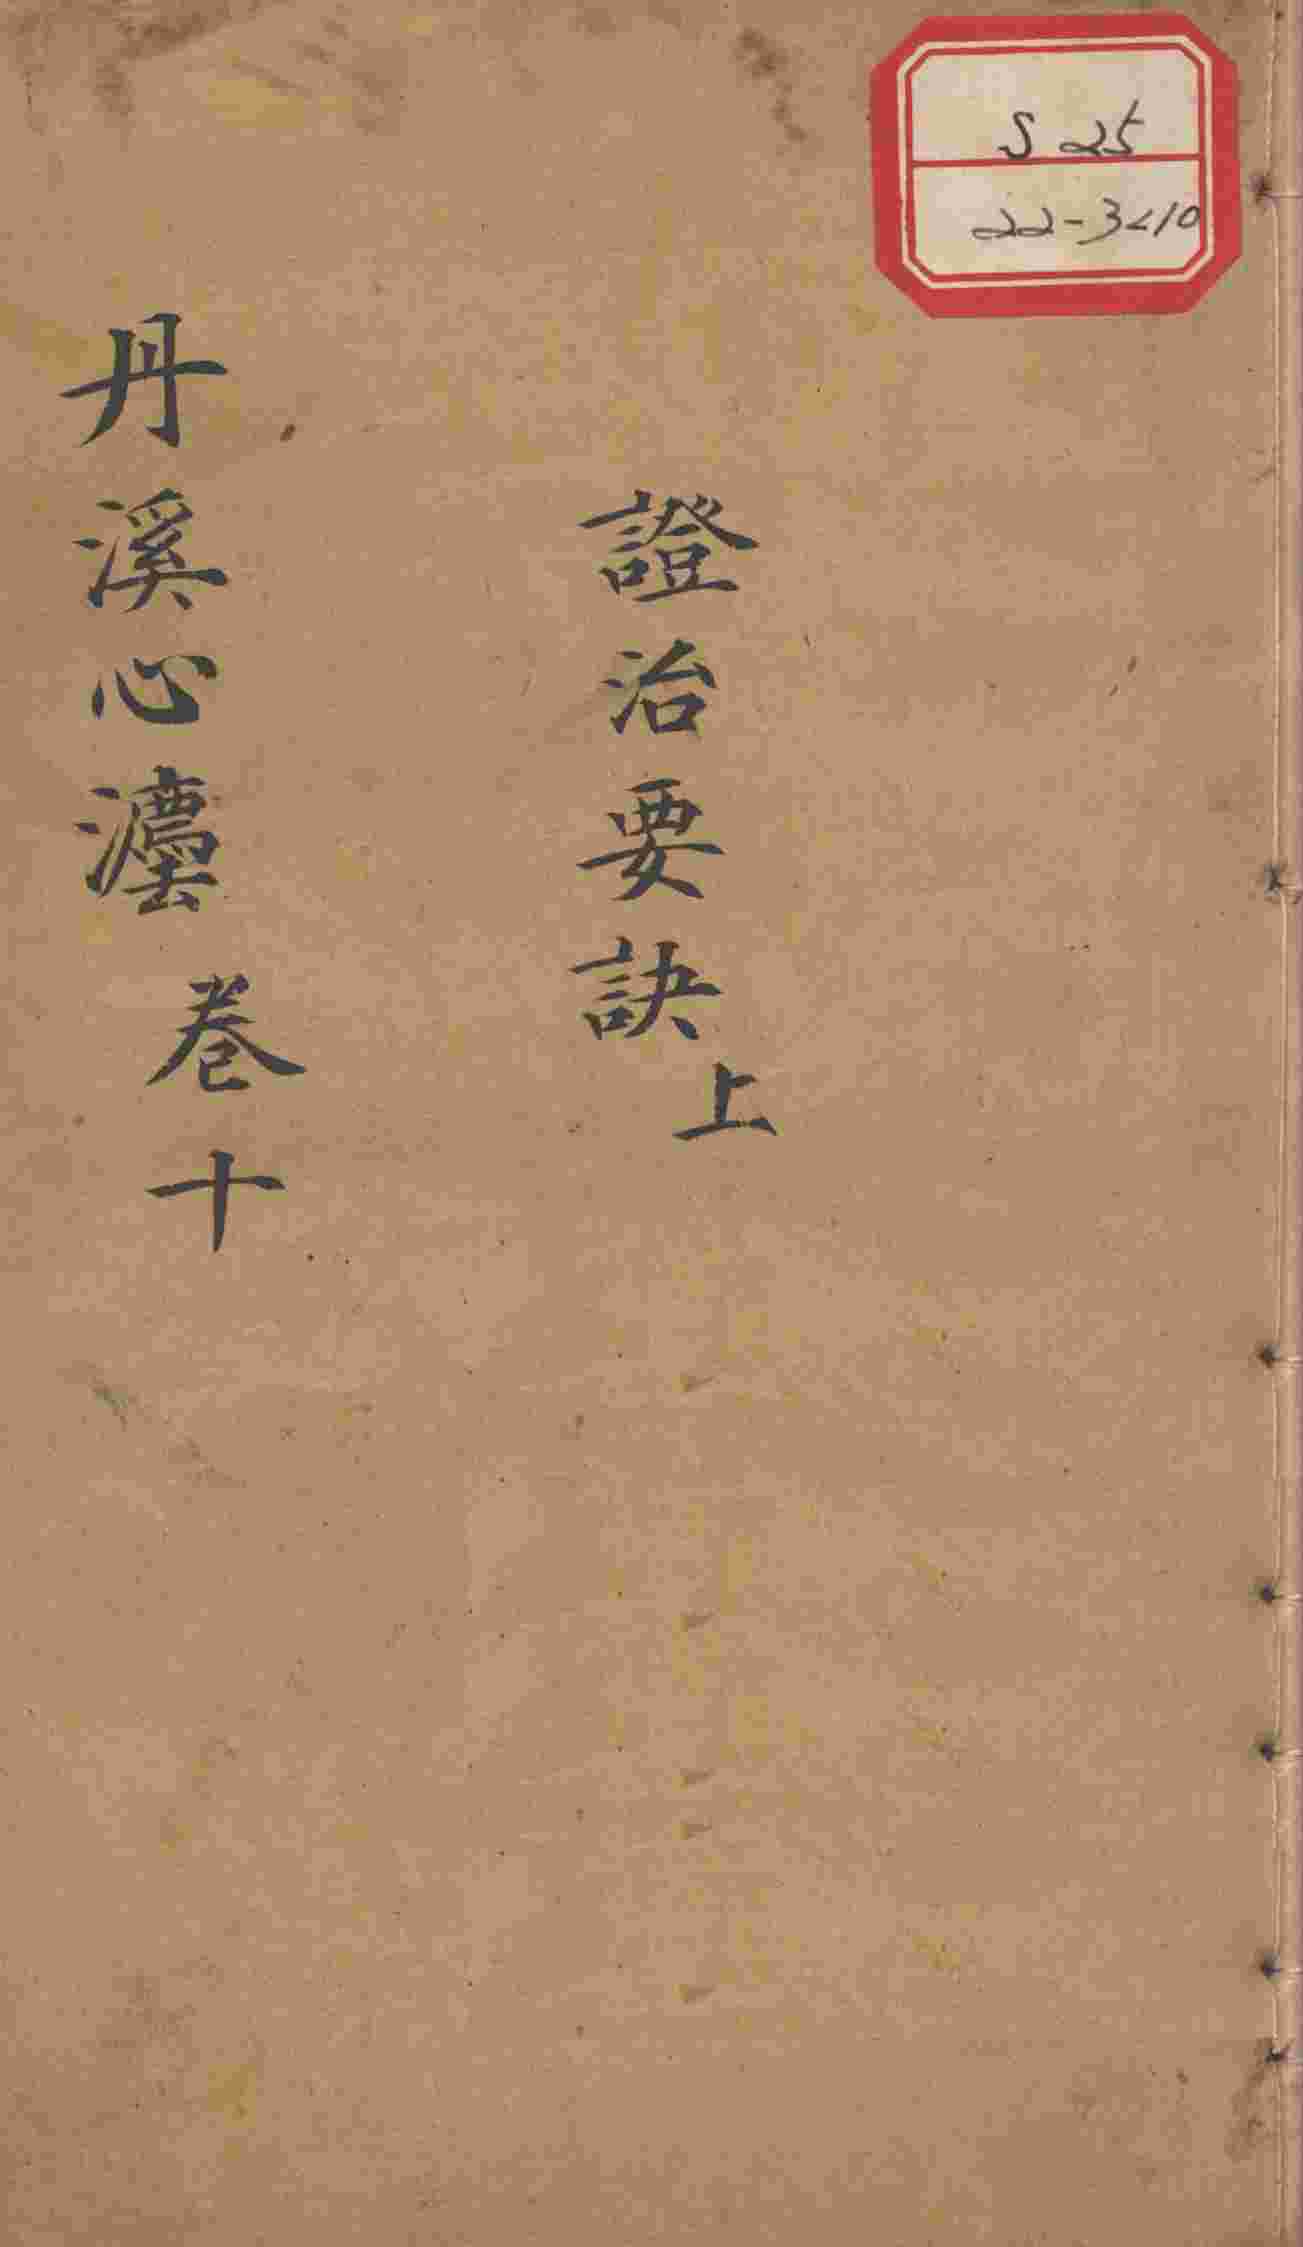 S 25
22-3<10
證治要訣上
丹溪心灋卷十